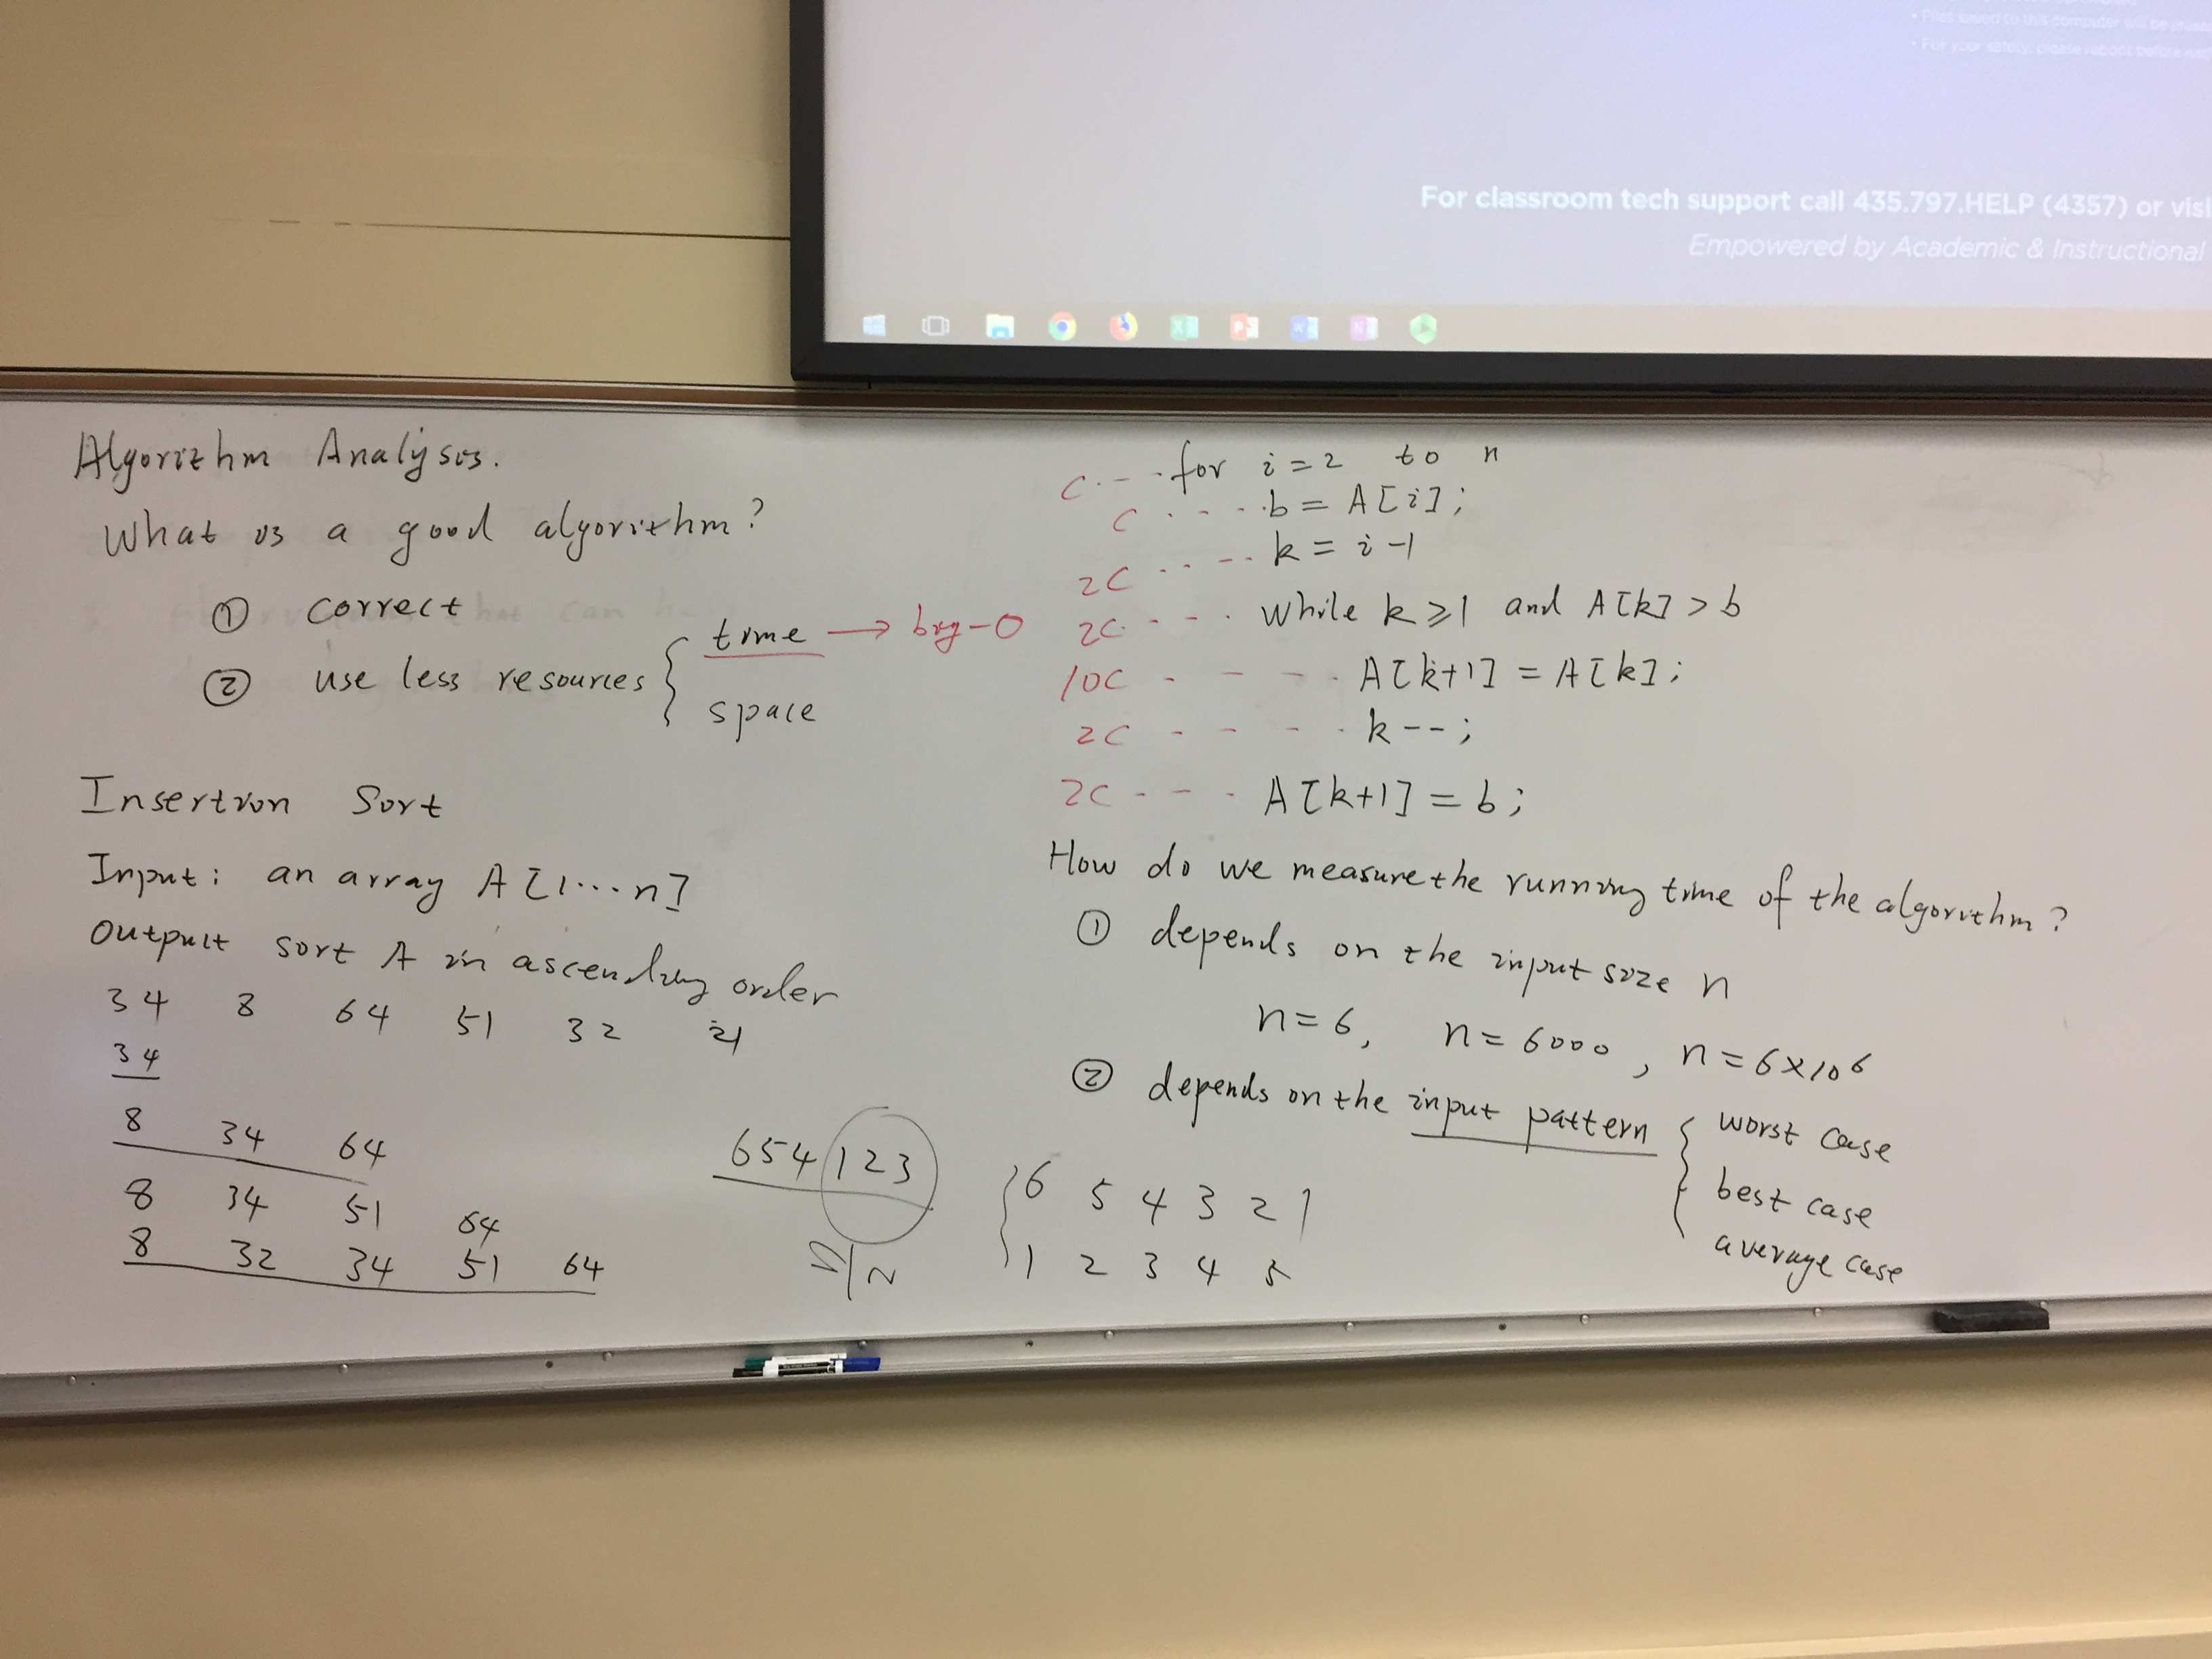 • Files saved to this computer will be
• For your safety, please reboot before
For classroom tech support call 435.797.HELP (4357) or visi
Empowered by Academic & Instructional
Algorithm Analysis.
What is a good algorithm?
① correct
② use less resources { time → big-O
space
Insertion Sort
Input: an array A[1...n]
Output sort A in ascending order
34 8 64 51 32 21
34
8 34 64
8 34 51 64
8 32 34 51 64
654123
6 5 4 3 2 1
1 2 3 4 5
C for i=2 to n
C b = A[i];
2C k = i-1
2C while k≥1 and A[k]>b
10C A[k+1] = A[k];
2C k--;
2C A[k+1] = b;
How do we measure the running time of the algorithm?
① depends on the input size n
n=6, n=6000, n=6×10⁶
② depends on the input pattern { worst case
best case
average case